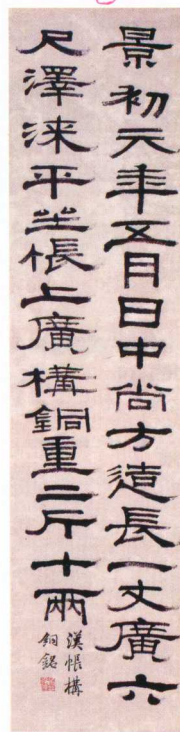 景初元年五月日中尚方造長一丈廣六
尺澤涞平坐帳上廣構銅重二斤十兩
漢帳構
銅銘